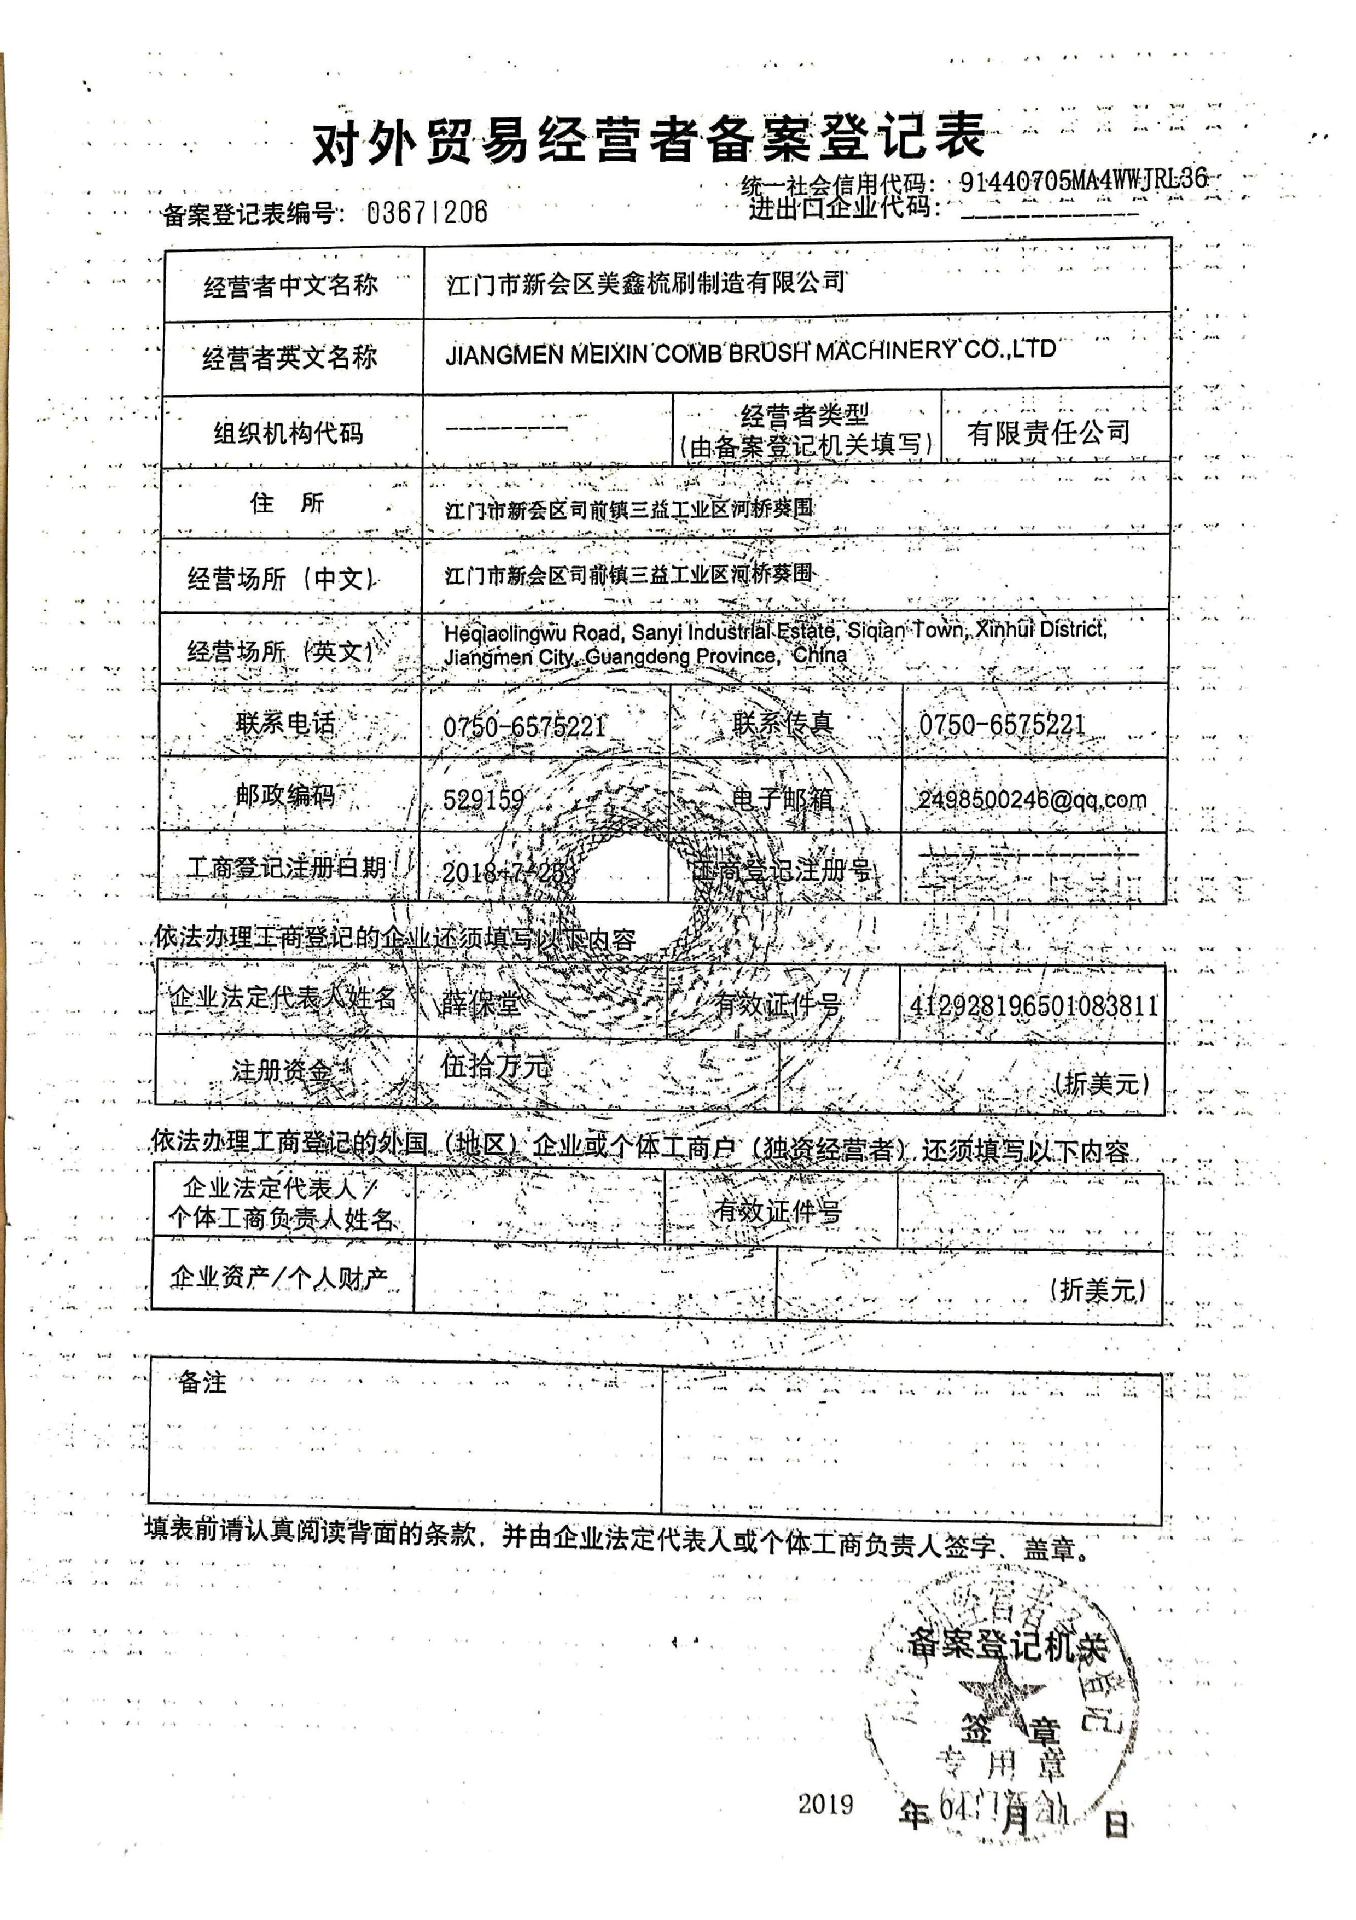 对外贸易经营者备案登记表
统一社会信用代码：91440705MA4WWJRL36
备案登记表编号：03671206
进出口企业代码：_____________
经营者中文名称 江门市新会区美鑫梳刷制造有限公司
经营者英文名称 JIANGMEN MEIXIN COMB BRUSH MACHINERY CO.,LTD
组织机构代码 --------- 经营者类型 有限责任公司
(由备案登记机关填写)
住 所 江门市新会区司前镇三益工业区河桥葵围
经营场所（中文） 江门市新会区司前镇三益工业区河桥葵围
经营场所（英文） Heqiaolingwu Road, Sanyi Industrial Estate, Siqian Town, Xinhui District,
Jiangmen City, Guangdong Province, China
联系电话 0750-6575221 联系传真 0750-6575221
邮政编码 529159 电子邮箱 2498500246@qq.com
工商登记注册日期 2018-7-25 工商登记注册号
依法办理工商登记的企业还须填写以下内容
企业法定代表人姓名 薛保堂 有效证件号 412928196501083811
注册资金 伍拾万元 (折美元)
依法办理工商登记的外国（地区）企业或个体工商户（独资经营者）还须填写以下内容
企业法定代表人/
个体工商负责人姓名 有效证件号
企业资产/个人财产 (折美元)
备注
填表前请认真阅读背面的条款，并由企业法定代表人或个体工商负责人签字、盖章。
备案登记机关
签 章
专用章
2019 年 04 月 11 日